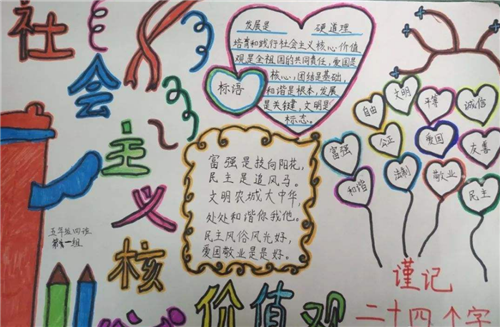 社会主义核心价值观
发展是 硬道理
培育和践行社会主义核心价值
观是全祖国的共同责任,爱国是
核心,团结是基础,
和谐是根本,发展
是关键,文明是
标志。
标语
富强是扶向阳花,
民主是追风马。
文明农城大中华,
处处和谐你我他。
民主风俗风光好,
爱国敬业是是好。
自由
文明
平等
诚信
富强
公正
爱国
友善
和谐
法制
敬业
民主
五年级四班
第一组
谨记
二十四个字